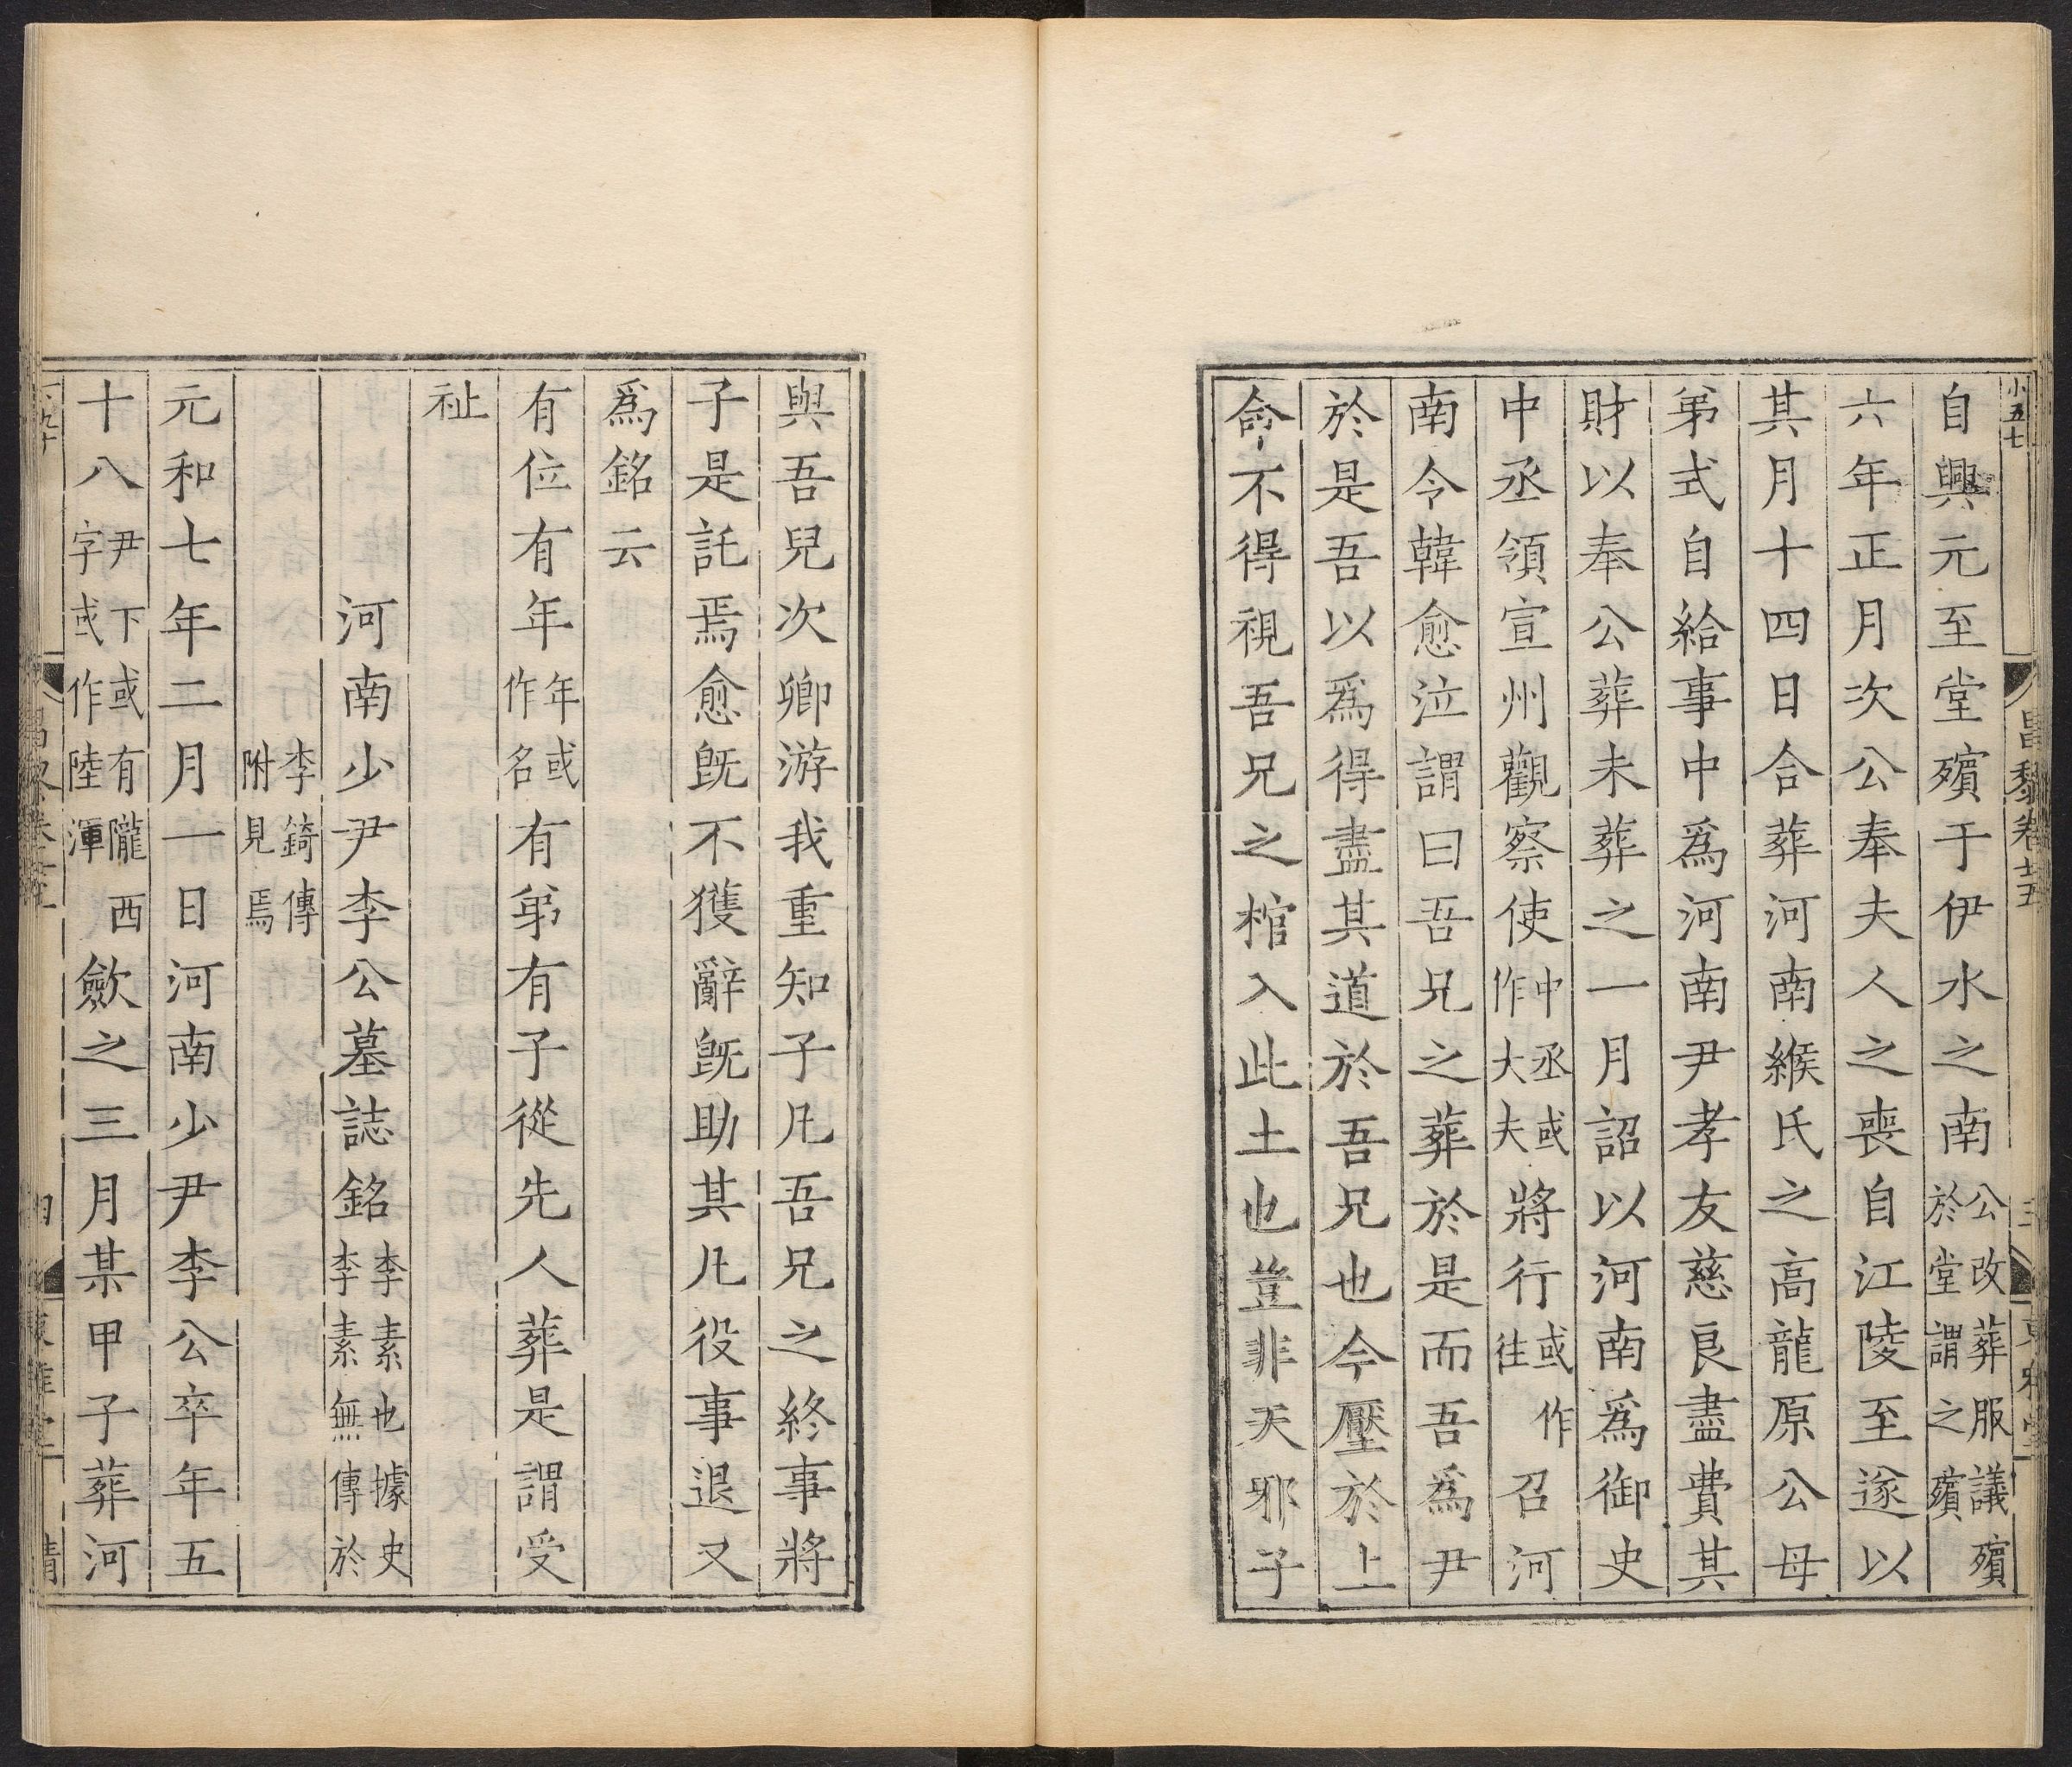 小五七
昌黎卷廿五
三
東雅堂
自興元至堂殯于伊水之南公改葬服議殯於堂謂之殯
六年正月次公奉夫人之喪自江陵至遂以
其月十四日合葬河南緱氏之高龍原公母
弟式自給事中為河南尹孝友慈良盡費其
財以奉公葬未葬之一月詔以河南為御史
中丞領宣州觀察使中丞或作大夫將行或作往召河
南令韓愈泣謂曰吾兄之葬於是而吾為尹
於是吾以為得盡其道於吾兄也今壓於上
命不得視吾兄之棺入此土也豈非天邪子
與吾兒次卿游我重知子凡吾兄之終事將
子是託焉愈既不獲辭既助其凡役事退又
為銘云
有位有年年或作名有弟有子從先人葬是謂受
祉
河南少尹李公墓誌銘李素也據史李素無傳於
李錡傳附見焉
元和七年二月一日河南少尹李公卒年五
十八尹下或有隴西字或作陸渾斂之三月某甲子葬河
四